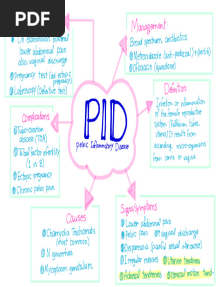 PDF
On examination: bilateral
lower abdominal pain
also vaginal discharge
Pregnancy test
Laparoscopy (definitive test)
Management
Broad spectrum antibiotics
Metronidazole
Ofloxacin (quinolone)
Definition
Infection or inflammation
of the female reproductive
system (Fallopian tubes,
uterus). It result from
ascending microorganisms
from cervix or vagina
PID
Pelvic Inflammatory Disease
Complications
Tubo-ovarian
abscess (TOA)
Tubal factor infertility
(1 in 8)
Ectopic pregnancy
Chronic pelvic pain
Causes
Chlamydia Trachomatis
(most common)
N. gonorrhea
Mycoplasma genitalium
Signs/Symptoms
Lower abdominal pain
Pelvic pain
vaginal discharge
Dyspareunia (painful sexual intercourse)
Irregular menses
Uterine tenderness
Adnexal tenderness
Cervical motion